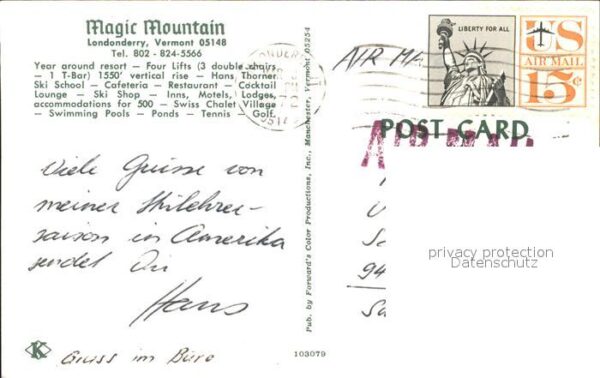 Magic Mountain
Londonderry, Vermont 05148
Tel. 802 - 824-5566
Year around resort — Four Lifts (3 double chairs,
— 1 T-Bar) 1550' vertical rise — Hans Thorner
Ski School — Cafeteria — Restaurant — Cocktail
Lounge — Ski Shop — Inns, Motels, Lodges,
accommodations for 500 — Swiss Chalet Village
— Swimming Pools — Ponds — Tennis — Golf.
Viele Grüsse von
meiner Skilehrer-
saison in Amerika
sendet Dir
Hans
Gruss im Büro
K
Pub. by Forward's Color Productions, Inc., Manchester, Vermont 05254
103079
AIR MA
LIBERTY FOR ALL
US
AIR MAIL
15¢
POST CARD
AIR MAIL
94
privacy protection
Datenschutz